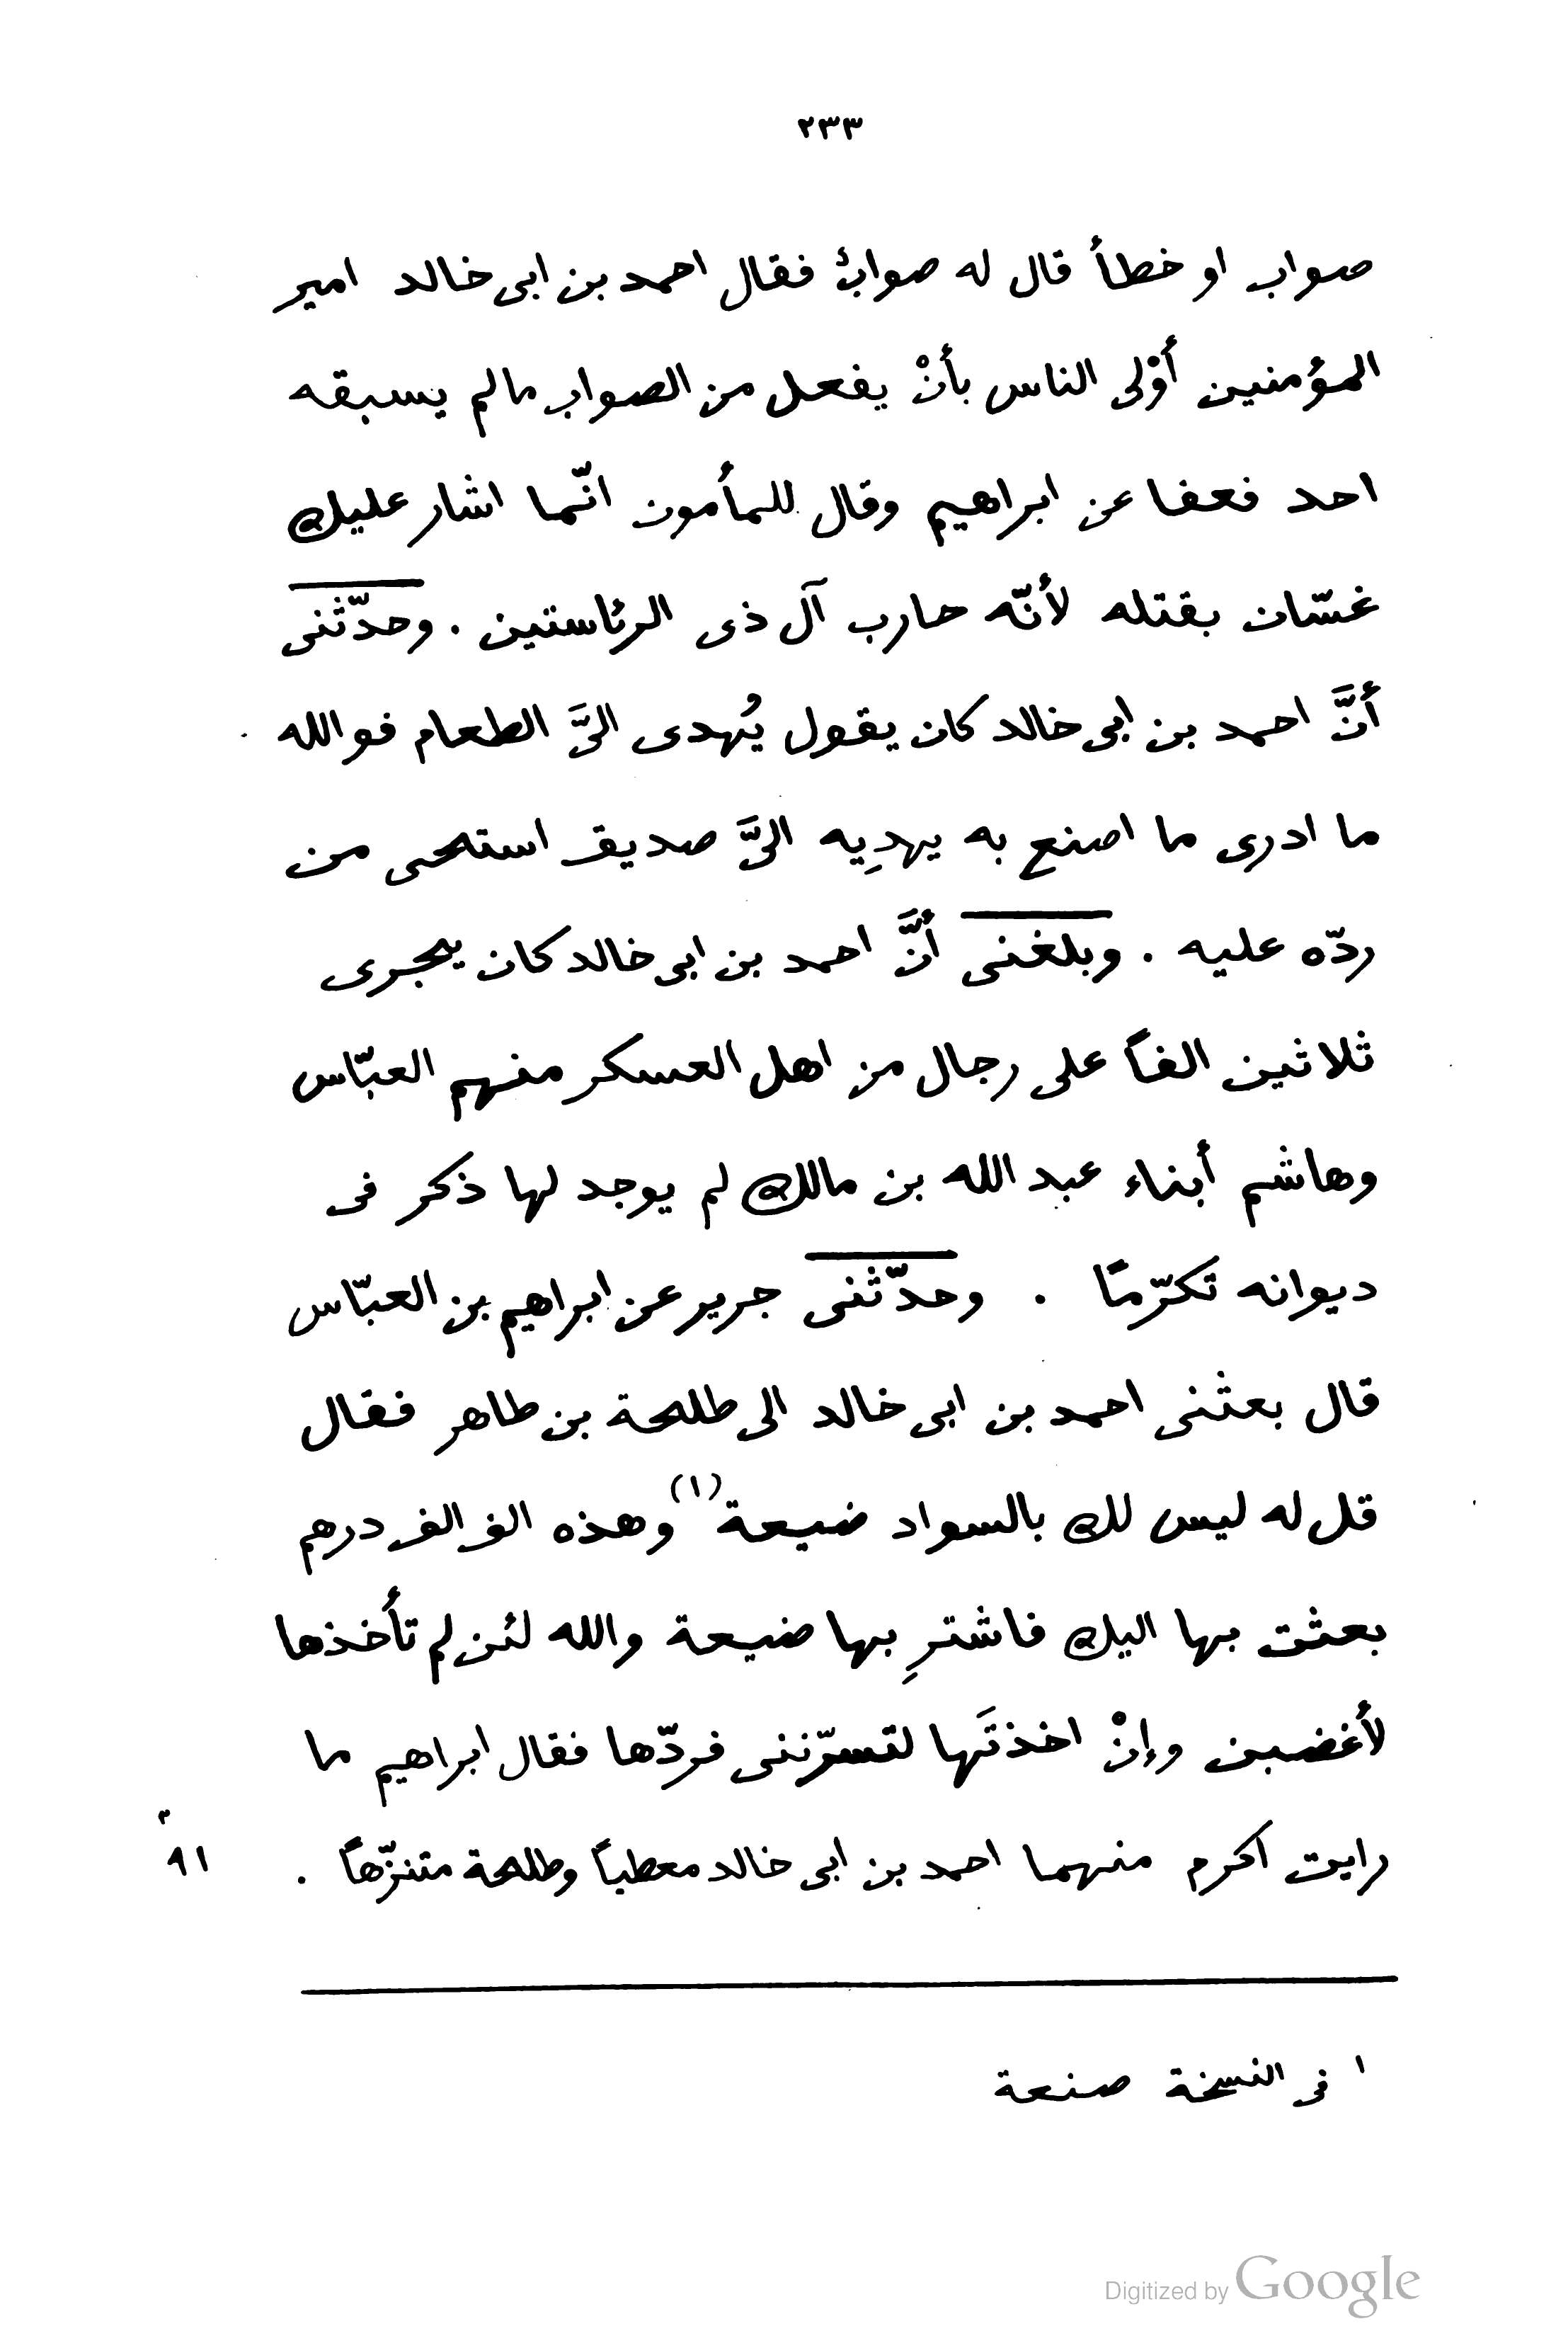 ٢٣٣
صواب او خطأ قال له صوابٌ فقال احمد بن ابى خالد امير
المؤمنين أوْلى الناس بأنْ يفعل من الصواب مالم يسبقه
احد فعفا عن ابراهيم وقال للمأمون انّما اشار عليك
غسّان بقتله لأنّه حارب آل ذى الرئاستين . وحدّثنى
أنَّ احمد بن ابى خالد كان يقول يُهدى الىَّ الطعام فوالله
ما ادرى ما اصنع به يهدِيه الىَّ صديق استحى من
ردّه عليه . وبلغنى أنَّ احمد بن ابى خالد كان يجرى
ثلاثين الفاً على رجال من اهل العسكر منهم العبّاس
وهاشم أبناء عبد الله بن مالك لم يوجد لها ذكر فى
ديوانه تكرّمًا . وحدّثنى جرير عن ابراهيم بن العبّاس
قال بعثنى احمد بن ابى خالد الى طلحة بن طاهر فقال
قل له ليس لك بالسواد ضيعة (١) وهذه الف الف درهم
بعثت بها اليك فاشترِ بها ضيعة والله لئن لم تأخذها
لأغضبن وإنْ اخذتَها لتسرّننى فردّها فقال ابراهيم ما
رايت اكرم منهما احمد بن ابى خالد معطياً وطلحة متنزّهاً .
٩١
١ فى النسخة صنعة
Digitized by Google